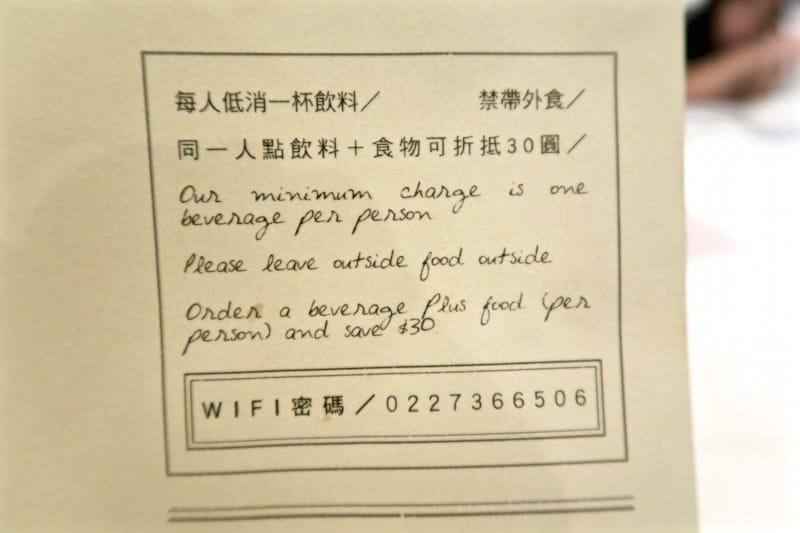 每人低消一杯飲料／ 禁帶外食／
同一人點飲料＋食物可折抵30圓／
Our minimum charge is one
beverage per person
Please leave outside food outside
Order a beverage plus food (per
person) and save $30
WIFI密碼／0227366506